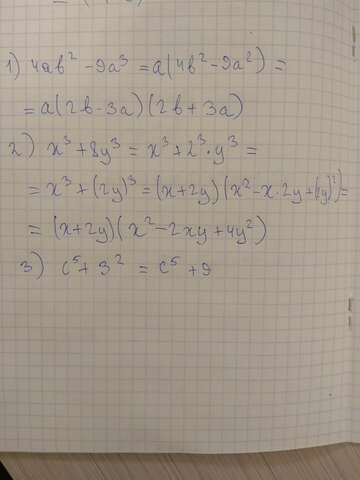 1) 4ab² - 9a³ = a(4b² - 9a²) =
= a(2b - 3a)(2b + 3a)
2) x³ + 8y³ = x³ + 2³ · y³ =
= x³ + (2y)³ = (x + 2y)(x² - x · 2y + (2y)²) =
= (x + 2y)(x² - 2xy + 4y²)
3) c⁵ + 3² = c⁵ + 9